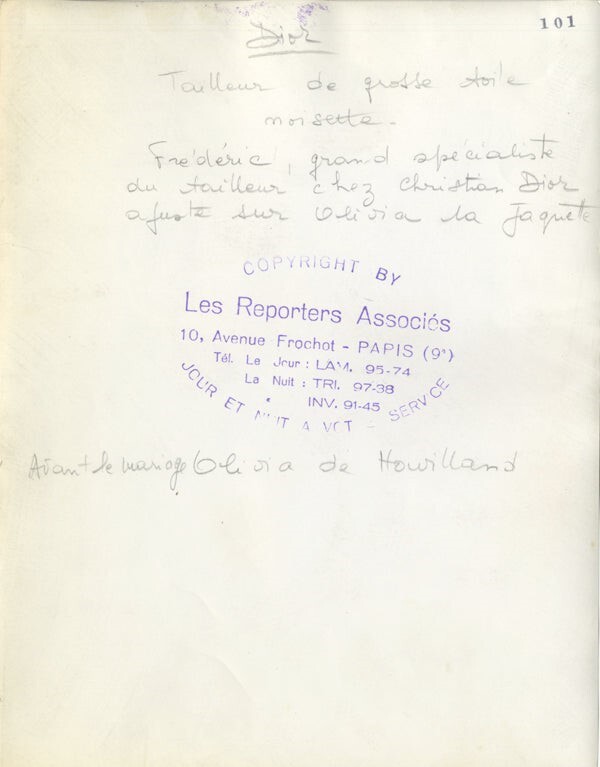 101
Dior
Tailleur de grosse toile
noisette -
Frédéric, grand spécialiste
du tailleur chez Christian Dior
ajuste sur Olivia la Jaquette
COPYRIGHT BY
Les Reporters Associés
10, Avenue Frochot - PARIS (9°)
Tél. Le Jour : LAM. 95-74
La Nuit : TRI. 97-38
INV. 91-45
JOUR ET NUIT A VOT SERVICE
Avant le mariage Olivia de Havilland